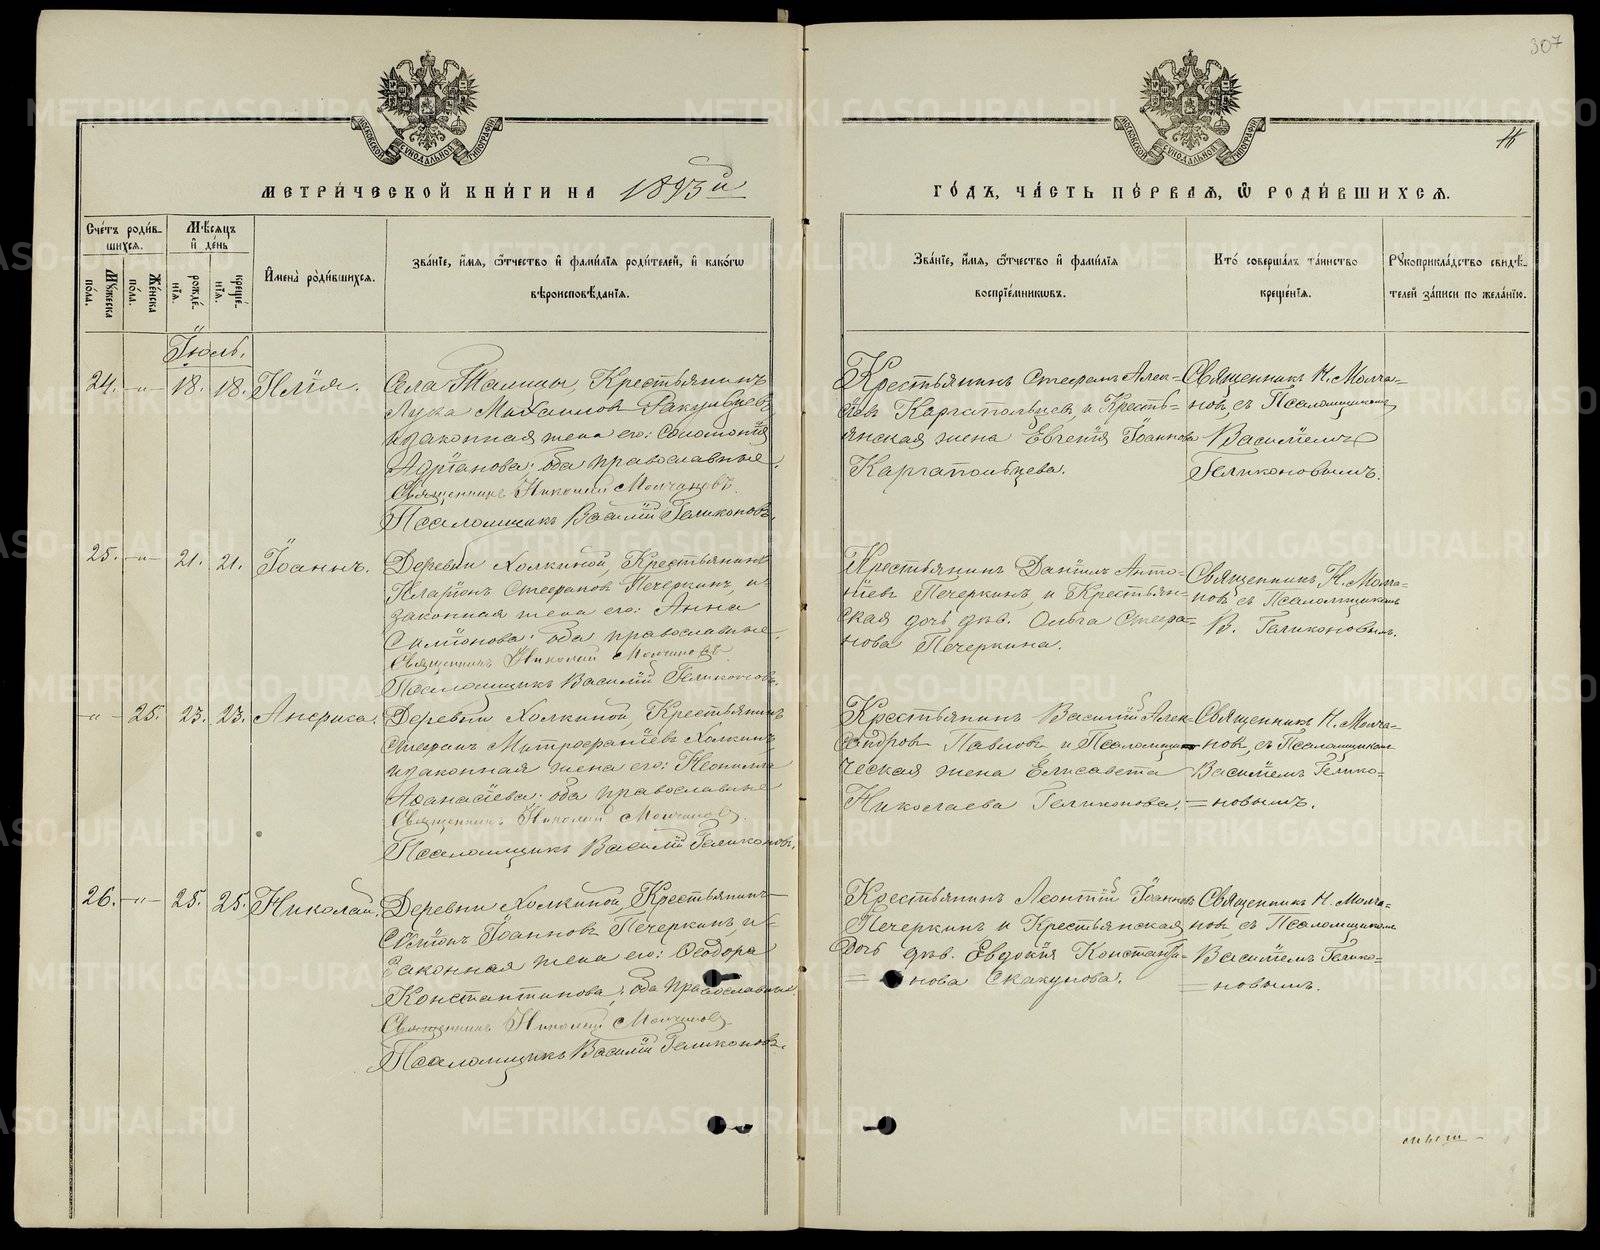 307
МОСКОВСКОЙ СѴНОДАЛЬНОЙ ТИПОГРАФІИ
МОСКОВСКОЙ СѴНОДАЛЬНОЙ ТИПОГРАФІИ
МЕТРИ́ЧЕСКОЙ КНИ́ГИ НА 1893й
ГО́ДЪ, ЧА́СТЬ ПЕ́РВАЯ, Ѽ РОДИ́ВШИХСЯ.
Сче́тъ роди́в-
шихся.
Мѣ́сяцъ
и де́нь
Му́жеска по́ла.
Же́нска по́ла.
рожде́-
нія.
креще́-
нія.
Имена̀ роди́вшихся.
Зва́ніе, и́мя, ѻ́тчество и фами́лія роди́телей, и како́гѡ
вѣроисповѣ́данія.
Зва́ніе, и́мя, ѻ́тчество и фами́лія
воспріе́мникѡвъ.
Кто́ соверша́лъ та́инство
креще́нія.
Рукоприкла́дство свидѣ́-
телей за́писи по жела́нію.
Іюль.
24. -"- 18. 18. Илія.
Села Талицы, Крестьянинъ
Лука Михаиловъ Ракульцевъ
и законная жена его: Соломонія
Адріанова: оба православные.
Священникъ Николай Молчановъ.
Псаломщикъ Василій Геликоновъ.
Крестьянинъ Стефанъ Алек-
сіевъ Каргапольцевъ, и Кресть-
янская жена Евгенія Іоаннова
Каргапольцева.
Священникъ Н. Молча-
новъ, съ Псаломщикомъ
Василіемъ
Геликоновымъ.
25. -"- 21. 21. Іоаннъ.
Деревни Холкиной, Крестьянинъ
Иларіонъ Стефановъ Печеркинъ, и
законная жена его: Анна
Симіонова: оба православные.
Священникъ Николай Молчановъ.
Псаломщикъ Василій Геликоновъ.
Крестьянинъ Даніилъ Анто-
ніевъ Печеркинъ, и Крестьян-
ская дочь дѣв. Ольга Стефа-
нова Печеркина.
Священникъ Н. Молча-
новъ съ Псаломщикомъ
В. Геликоновымъ.
-"- 25. 23. 23. Анфиса.
Деревни Холкиной, Крестьянинъ
Стефанъ Митрофаніевъ Холкинъ,
и законная жена его: Неонилла
Аѳанасіева: оба православные
Священникъ Николай Молчановъ.
Псаломщикъ Василій Геликоновъ.
Крестьянинъ Василій Алек-
сандровъ Павловъ, и Псаломщи-
ческая жена Елисавета
Николаева Геликонова.
Священникъ Н. Молча-
новъ, съ Псаломщикомъ
Василіемъ Гелико-
=новымъ.
26. -"- 25. 25. Николай.
Деревни Холкиной, Крестьянинъ
Іоанновъ Печеркинъ, и
Законная жена его: Ѳеодора
Константинова: оба православные.
Священникъ Николай Молчановъ
Псаломщикъ Василій Геликоновъ.
Крестьянинъ Леонтій Іоанновъ
Печеркинъ, и Крестьянская
дочь дѣв. Евдокія Константи-
= нова Скакунова.
Священникъ Н. Молча-
новъ, съ Псаломщикомъ
Василіемъ Гелико-
= новымъ.
METRIKI.GASO-URAL.RU